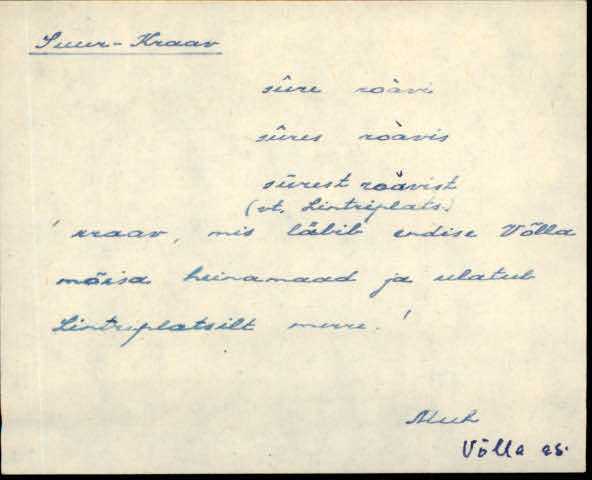 Suur-Kraav
sūre roàvi
sūres roàvis
sūrest roàvist
(vt. Lintriplats.)
' kraav, mis läbib endise Võlla
mõisa heinamaad ja ulatub
Lintriplatsilt merre. '
Muh
Võlla as.